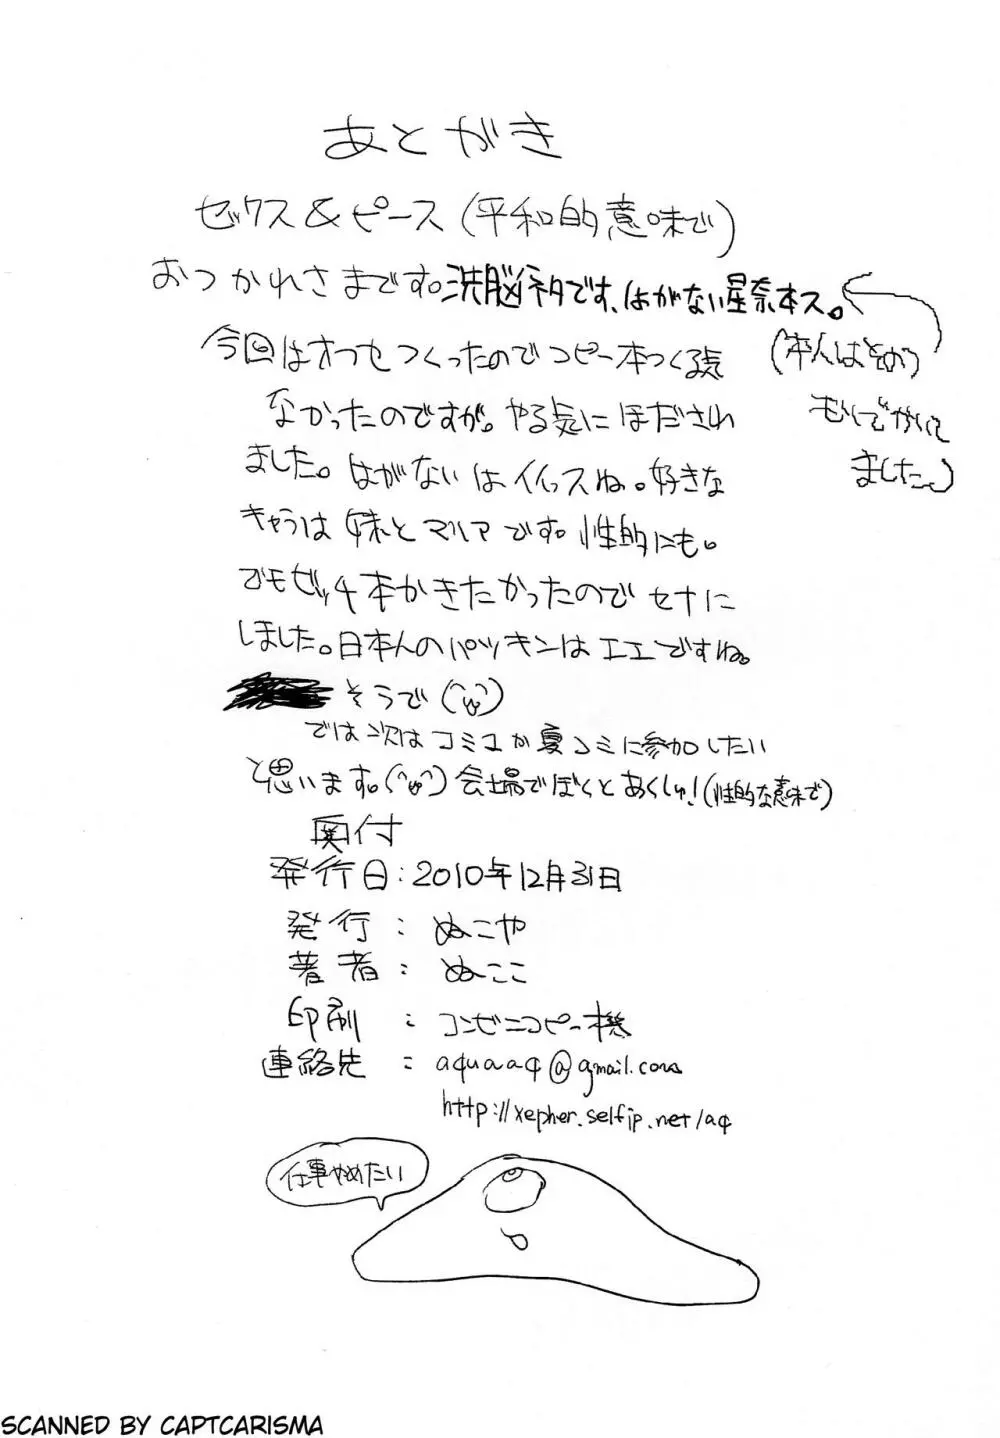 あとがき
セックス&ピース(平和的意味で)
おつかれさまです。洗脳ネタです、はがない星奈本ス。
(本人はそのつもりでかいてました。)
今回はオフセつくったのでコピー本つくる気
なかったのですが。やる気にほだされ
ました。はがないはイイっスね。好きな
キャラは妹とマリアです。性的にも。
でもビッチ本かきたかったのでセナに
しました。日本人のパツキンはエエですね。
そうで(^ω^)
では次はコミコか夏コミに参加したい
と思います。(^ω^)会場でぼくとあくしゅ!(性的な意味で)
奥付
発行日:2010年12月31日
発行:ぬこや
著者:ぬここ
印刷:コンビニコピー機
連絡先:aquaaq@gmail.com
http://xepher.selfip.net/aq
仕事やめたい
SCANNED BY CAPTCARISMA